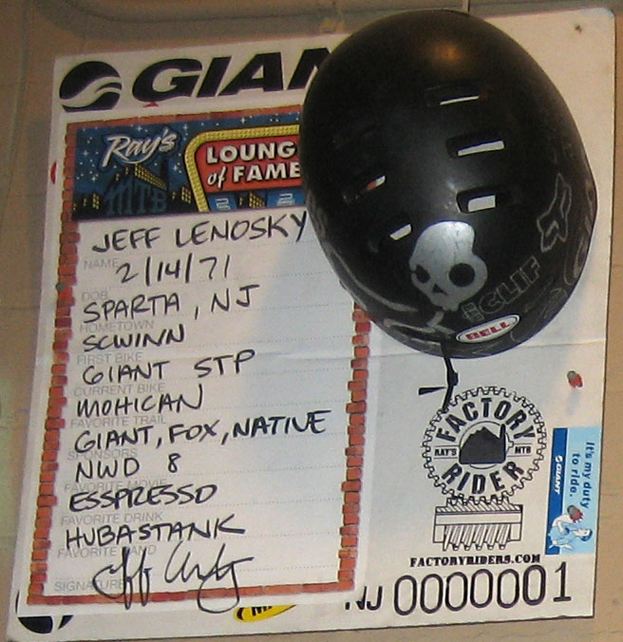 GIAN
Ray's
MTB
LOUNG
of FAME
JEFF LENOSKY
NAME
2/14/71
DOB
SPARTA, NJ
HOMETOWN
SCWINN
FIRST BIKE
GIANT STP
CURRENT BIKE
MOHICAN
FAVORITE TRAIL
GIANT, FOX, NATIVE
SPONSORS
NWD 8
FAVORITE MOVIE
ESSPRESSO
FAVORITE DRINK
HUBASTANK
FAVORITE BAND
SIGNATURE
CLIF
BELL
FACTORY
RAY'S MTB
RIDER
FACTORYRIDERS.COM
NJ 0000001
It's my duty
to ride.
GIANT